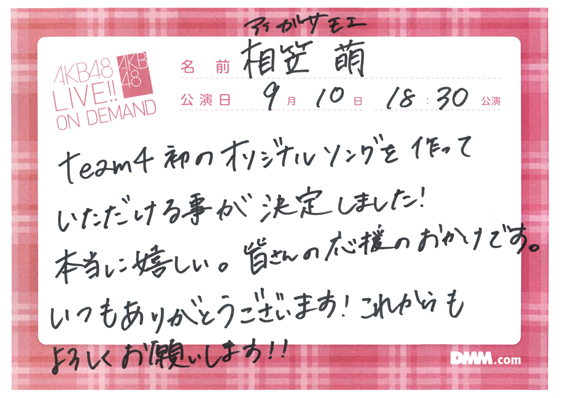 アイガサモエ
AKB48 LIVE!! ON DEMAND
AKB48
名前 相笠 萌
公演日 9月 10日 18:30 公演
team4 初のオリジナルソングを作って
いただける事が決定しました!
本当に嬉しい。皆さんの応援のおかげです。
いつもありがとうございます!これからも
よろしくお願いします!!
DMM.com